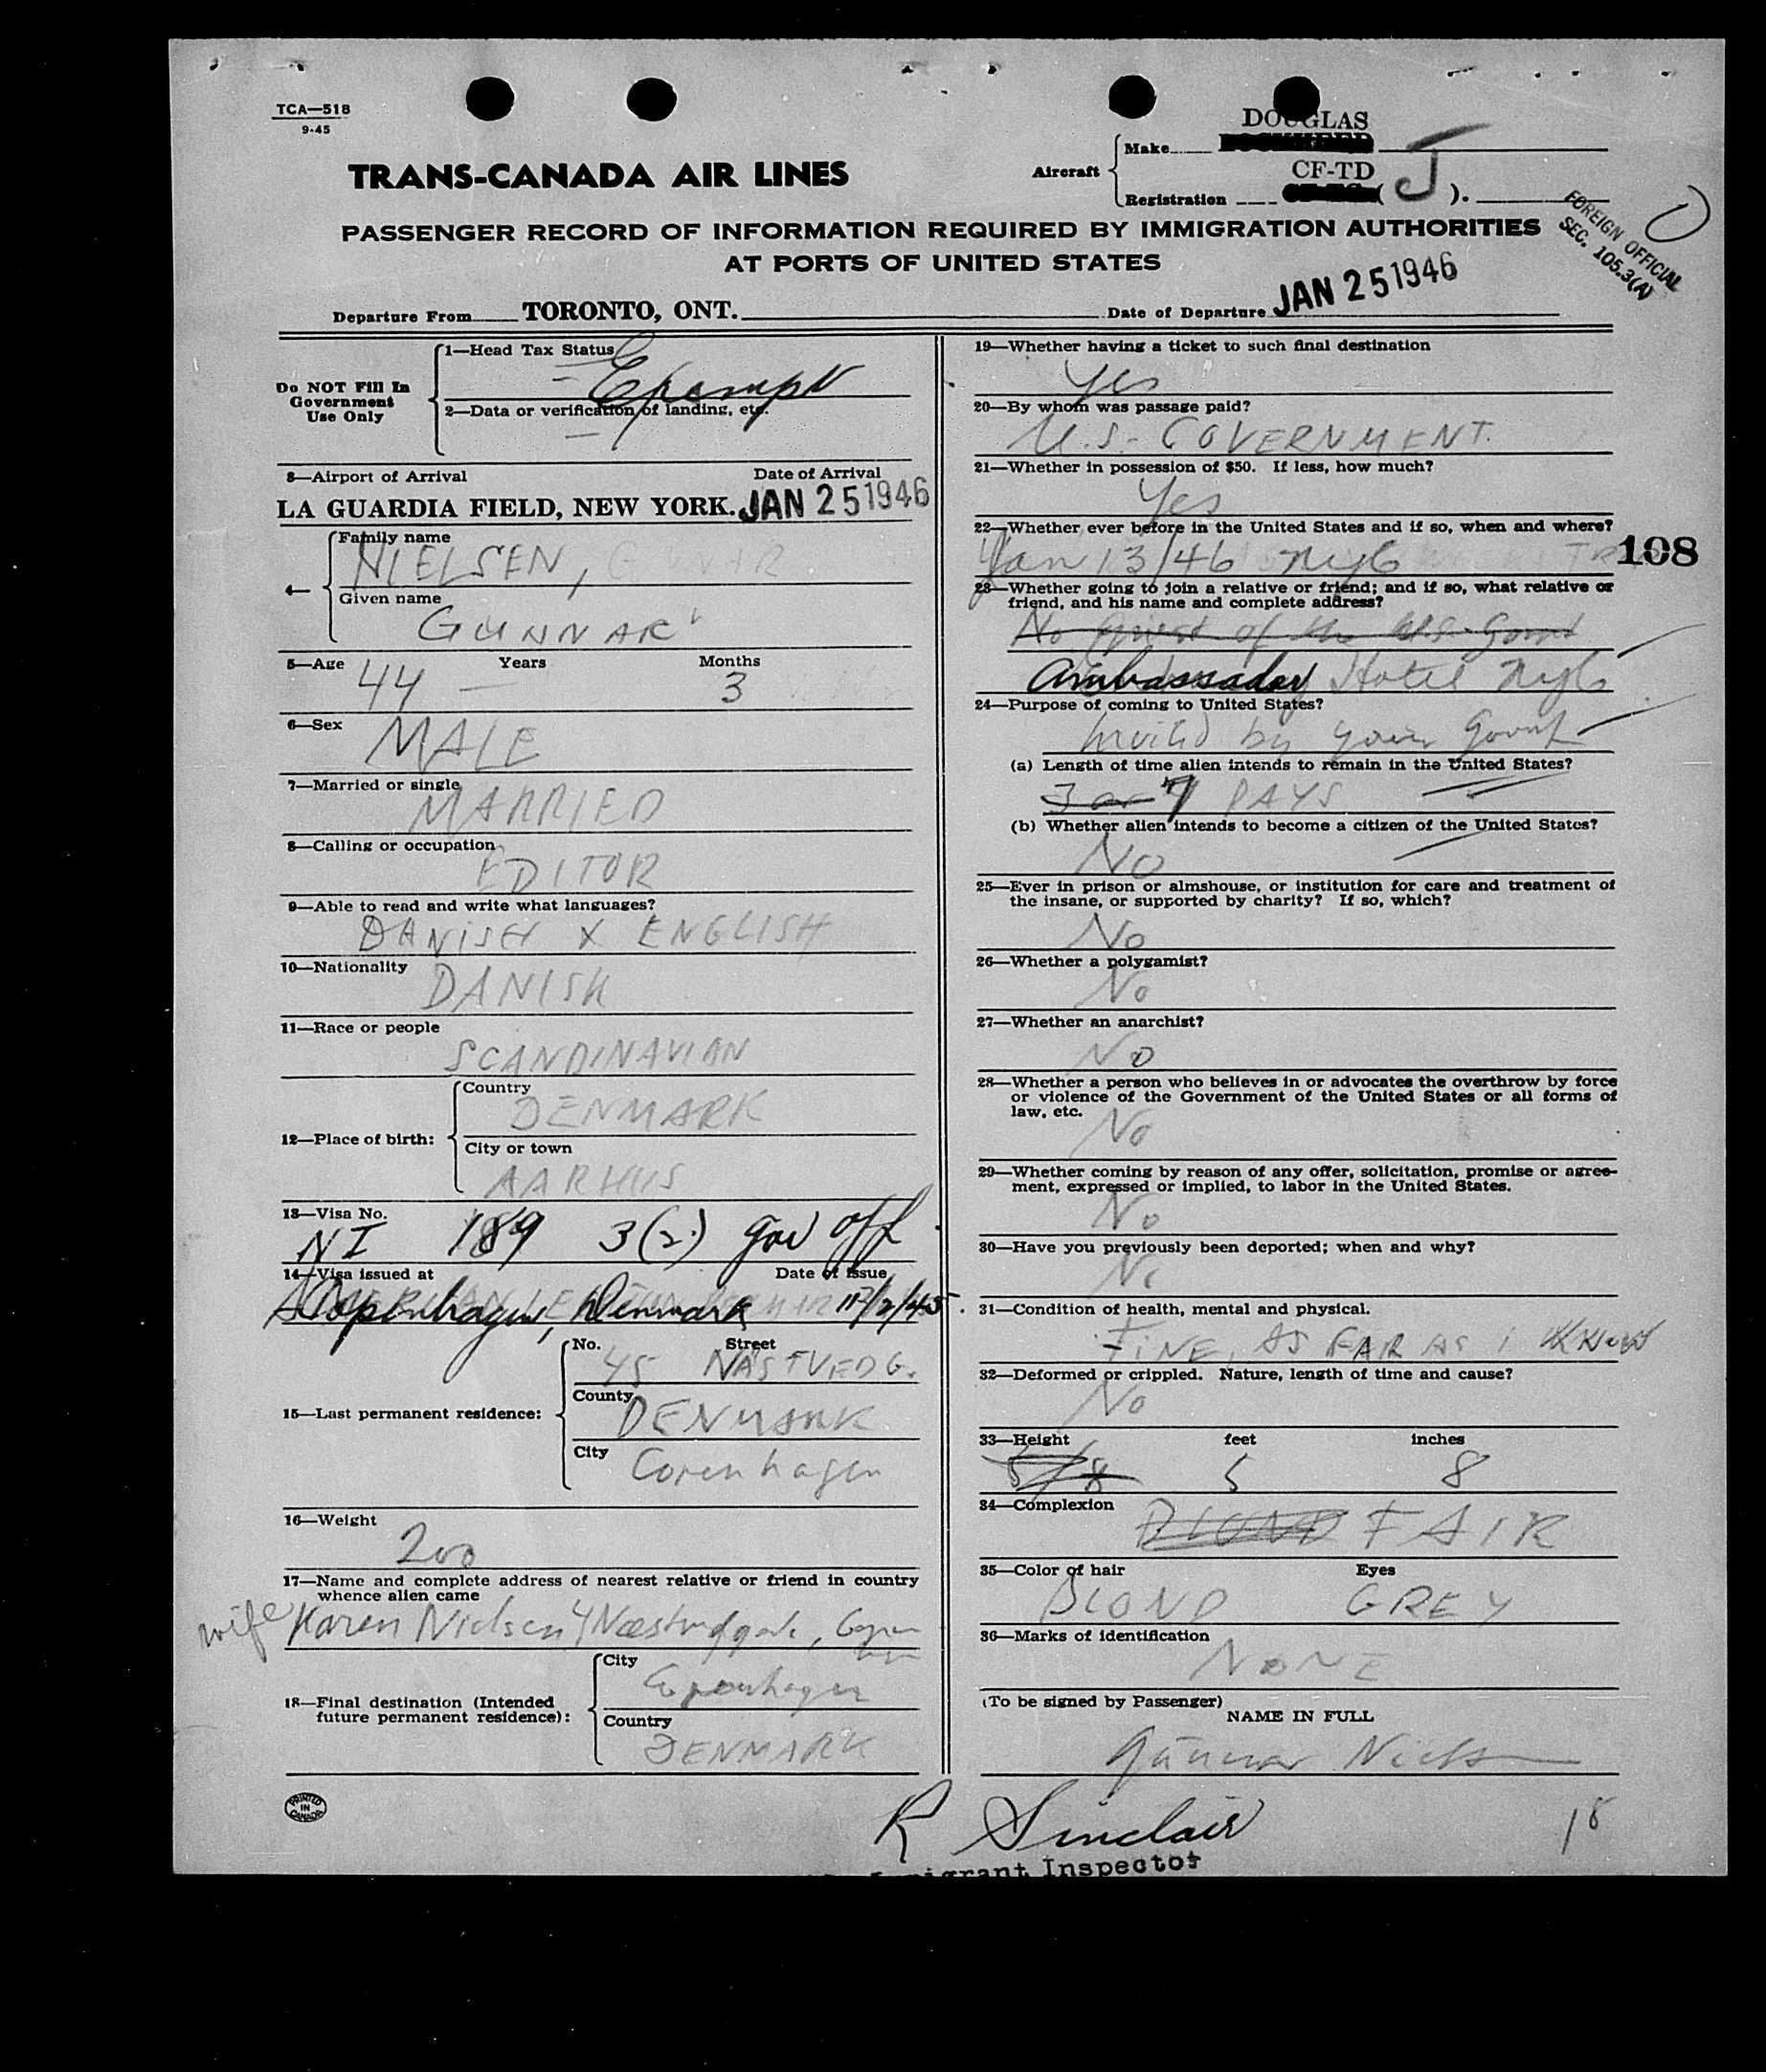 TCA—518
9-45
TRANS-CANADA AIR LINES
Aircraft
Make
DOUGLAS
Registration
CF-TD
( J ).
PASSENGER RECORD OF INFORMATION REQUIRED BY IMMIGRATION AUTHORITIES
AT PORTS OF UNITED STATES
FOREIGN OFFICIAL
SEC. 105.3(A)
Departure From TORONTO, ONT.
Date of Departure JAN 25 1946
Do NOT Fill In
Government
Use Only
1—Head Tax Status
Exempt
2—Data or verification of landing, etc.
3—Airport of Arrival Date of Arrival
LA GUARDIA FIELD, NEW YORK. JAN 25 1946
4—
Family name
NIELSEN,
Given name
GUNNAR
5—Age Years Months
44 — 3
6—Sex
MALE
7—Married or single
MARRIED
8—Calling or occupation
EDITOR
9—Able to read and write what languages?
DANISH X ENGLISH
10—Nationality
DANISH
11—Race or people
SCANDINAVIAN
12—Place of birth:
Country
DENMARK
City or town
AARHUS
13—Visa No.
NI 189 3(2) Gov off
14—Visa issued at Date of Issue
Copenhagen, Denmark 11/2/45
15—Last permanent residence:
No. Street
45 NASTVEDG.
County
DENMARK
City
Copenhagen
16—Weight
200
17—Name and complete address of nearest relative or friend in country
whence alien came
wife Karen Nielsen
18—Final destination (Intended
future permanent residence):
City
Copenhagen
Country
DENMARK
PRINTED
IN
CANADA
19—Whether having a ticket to such final destination
Yes
20—By whom was passage paid?
U.S. GOVERNMENT.
21—Whether in possession of $50. If less, how much?
Yes
22—Whether ever before in the United States and if so, when and where?
Jan 13/46 NYC
108
23—Whether going to join a relative or friend; and if so, what relative or
friend, and his name and complete address?
No guest of the U.S. Govnt
Ambassador Hotel NYC
24—Purpose of coming to United States?
Invited by your Govnt
(a) Length of time alien intends to remain in the United States?
3 or 7 DAYS
(b) Whether alien intends to become a citizen of the United States?
NO
25—Ever in prison or almshouse, or institution for care and treatment of
the insane, or supported by charity? If so, which?
No
26—Whether a polygamist?
No
27—Whether an anarchist?
NO
28—Whether a person who believes in or advocates the overthrow by force
or violence of the Government of the United States or all forms of
law, etc.
No
29—Whether coming by reason of any offer, solicitation, promise or agree-
ment, expressed or implied, to labor in the United States.
No
30—Have you previously been deported; when and why?
No
31—Condition of health, mental and physical.
FINE, AS FAR AS I KNOW
32—Deformed or crippled. Nature, length of time and cause?
No
33—Height feet inches
5/8 5 8
34—Complexion
BLOND FAIR
35—Color of hair Eyes
BLOND GREY
36—Marks of identification
NONE
(To be signed by Passenger)
NAME IN FULL
Gunnar Niels
R Sinclair
Immigrant Inspector
18